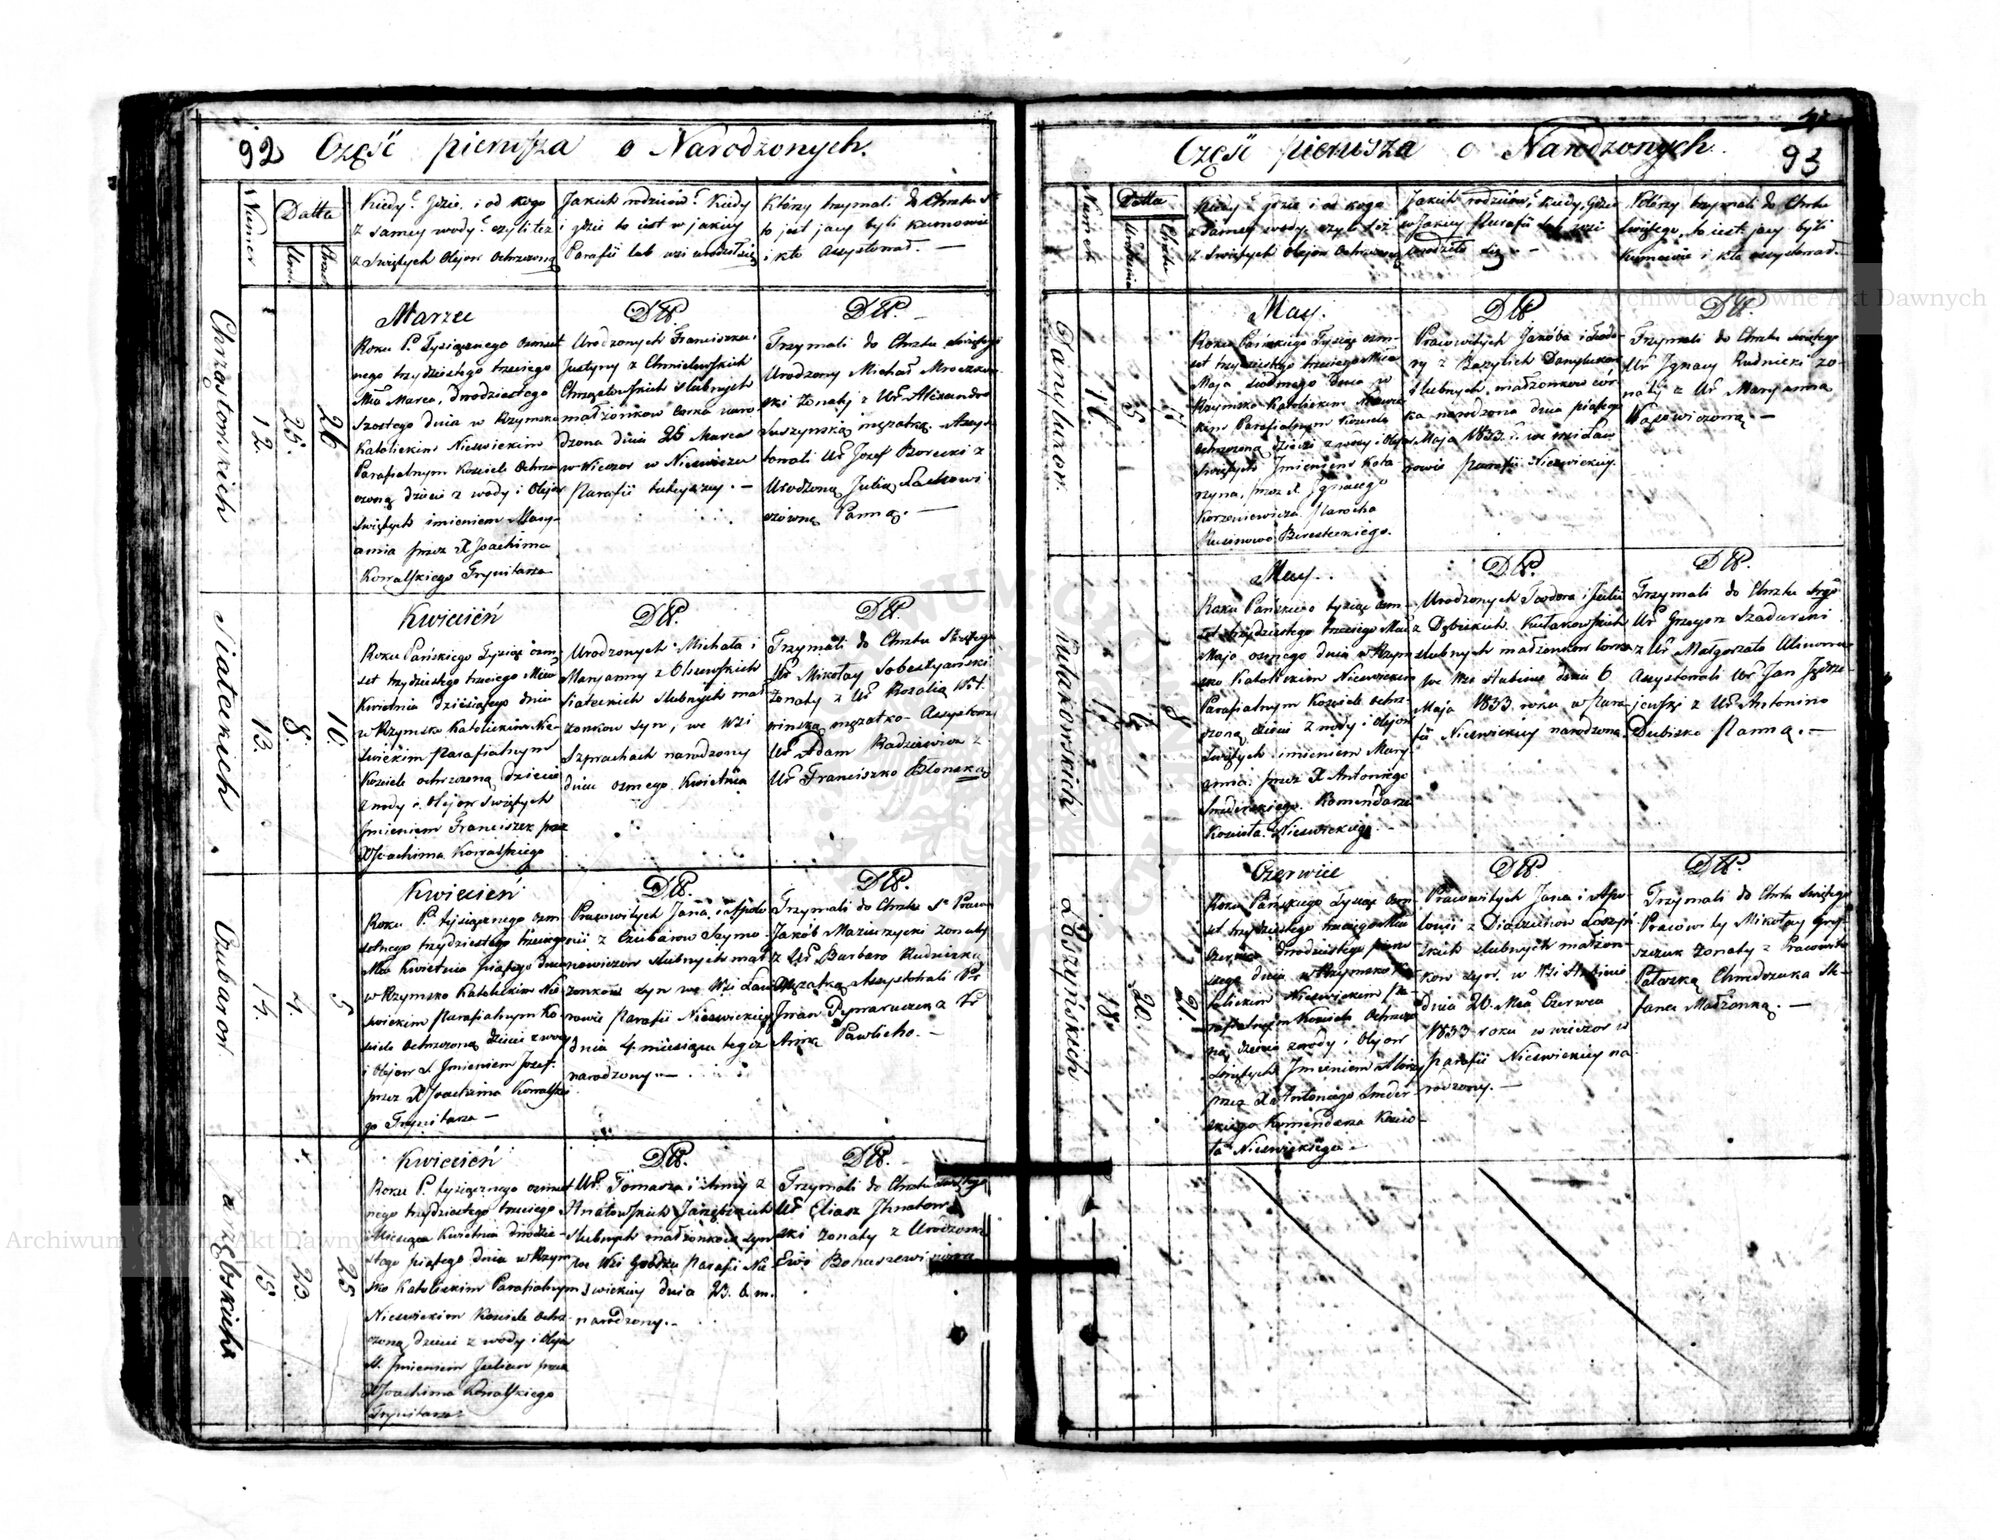 92 Część pierwsza o Narodzonych.
Numer
Datta
Urod.
Chrztu
Kiedy? Gdzie i od kogo
z samey wody? czyli też
z Swiętych Olejow Ochrzczony
Jakich rodziców? Kiedy
i gdzie to iest w jakiey
Parafii lub wsi urodził się
Którzy trzymali do Chrztu St
to jest jacy byli Kumowie
i kto Assystował. —
Chrząstowskich
12.
25.
26
Marzec
Roku P. Tysiącznego Osmset
nego trzydziestego trzeciego
Mca Marca, dwódziestego
szostego dnia w Rzymsko
Katolickim Nieswickim
Parafialnym Kosciele Ochrz
czoną dziecie z wody i Olejow
Swiętych imieniem Mary-
anna przez X Joachima
Kowalskiego Trynitarza
DtŁ
Urodzonych Franciszka i
Justyny z Chmielewskich
Chrząstowskich slubnych
małżonkow corka naro
dzona dnia 25 Marca
w Wieczor w Nieswiczu
Parafii tuteyszey. —
DtŁ
Trzymali do Chrztu świętego
Urodzony Michał Mroczkow-
ski żonaty z Ur Alexandrą
Suszynską mężatką. Assys-
towali Ur Jozef Borecki z
Urodzoną Julią Lackowi
czówną Panną. —
Siateckich
13.
8.
10.
Kwiecień
Roku Pańskiego Tysiąc osm-
set trzydziestego trzeciego Mca
Kwietnia dziesiątego dnia
w Rzymsko Katolickim Nie-
świckim Parafialnym
Kosciele ochrzczoną dziecie
z wody i Olejow swiętych
Jmieniem Franciszek przez
X Joachima Kowalskiego
DtŁ.
Urodzonych Michała i
Maryanny z Olszewskich
Siateckich Slubnych mał
żonkow syn, we Wsi
Szprachach narodzony
dnia osmego Kwietnia
DtŁ.
Trzymali do Chrztu Świętego
Ur Mikołay Sobestyański
żonaty z Ur Rozalią Wit
wińską mężatką Assystow
Ur Adam Radziewicz z
Ur Franciszką Błonską
Czubarow
14.
4.
5
Kwiecień
Roku P. tysiącznego osm
setnego trzydziestego trzeciego
Mca Kwietnia piątego dnia
w Rzymsko Katolickim Nie
świckim Parafialnym Ko
sciele Ochrzczoną dziecie z wody
i Olejow S. Jmieniem Jozef
przez X Joachima Kowalskie
go Trynitarza —
DtŁ
Pracowitych Jana i Apolo
nii z Czubarow Szymo
nowiczow slubnych mał
żonkow syn we Wsi Ław
rowie Parafii Nieswickiey
dnia 4 miesiąca tegoż
narodzony. —
DtŁ.
Trzymali do Chrztu St Praco
Jakób Mazurzycki żonaty
z Ur Barbarą Rudnicką
Mężatką Assystowali Pr
Jwan Dymarczuk z Pr
Anną Pawlicho. —
Jarzębskich
15.
23.
25
Kwiecień
Roku P. tysiącznego osmset
nego trzydziestego trzeciego
Miesiąca Kwietnia dwódzie-
stego piątego dnia w Rzym
sko Katolickim Parafialnym
Nieswickim Kosciele Ochrz
czoną dziecie z wody i Olejow
St. Jmieniem Julian przez
X Joachima Kowalskiego
Trynitarza
DtŁ.
Ur. Tomasza i Anny z
Jhnatowskich Jarzębskich
slubnych małżonkow syn
we Wsi Gródku Parafii Nie
świckiey dnia 23. b. m.
narodzony. —
DtŁ.
Trzymali do Chrztu świętego
Ur Eliasz Jhnatow
ski żonaty z Urodzoną
Ewą Bohuszewiczową
Część pierwsza o Narodzonych. 93
Numerek
Datta
Urodzenia
Chrztu
Kiedy? gdzie i od kogo
z samey wody czyli też
z Swiętych Olejow Ochrzczony
Jakich rodziców? kiedy, Gdzie
w Jakiey Parafii lub wsi
urodziło się. —
Którzy trzymali do Chrztu
świętego, to iest jacy byli
Kumowie i kto assystował.
Daniluków.
16.
5
7
May.
Roku Pańskiego Tysiąc osm-
set trzydziestego trzeciego Mca
Maja siodmego dnia w
Rzymsko Katolickim Nieswic
kim Parafialnym Kosciele
ochrzczoną dziecie z wody i Olejow
Swiętych Jmieniem Kata
rzyna, przez X. Jgnacego
Korzeniewicza Parocha
Rusinowo Beresteckiego.
DtŁ
Pracowitych Jakóba i Teodo
ry z Bazylich Danylukow
slubnych, małżonkow cór
ka narodzona dnia piątego
Maja 1833. r. we wsi Ław
rowie Parafii Nieswickiey.
DtŁ.
Trzymali do Chrztu świętego
Ur Jgnacy Rudnicki żo-
naty z Ur Maryanną
Wąsowiczową. —
Kułakowskich
17.
6.
8
May.
Roku Pańskiego tysiąc osm-
set trzydziestego trzeciego Mca
Maja osmego dnia w Rzym
sko Katolickim Nieswickim
Parafialnym Kosciele ochrz
czoną dziecie z wody i Olejow
Swiętych imieniem Mary
anna przez X Antoniego
Komendarza
Koscioła Nieswickiego. —
DtŁ.
Urodzonych Teodora i Julii
z Dębickich Kułakowskich
slubnych małżonkow corka
we Wsi Słubiczu dnia 6
Maja 1833 roku w Para
fii Nieswickiey narodzona.
DtŁ.
Trzymali do Chrztu Swgo
Ur Grzegorz Szadurski
z Ur Małgorzatą
Assystowali Ur Jan Jędrze-
jewski z Ur Antoniną
Dubiską Panną. —
Łoszyńskich
18.
20.
21.
Czerwiec
Roku Pańskiego Tysiąc osm
set trzydziestego trzeciego Mca
Czerwca dwodziestego pierw
szego dnia w Rzymsko Ka
tolickim Nieswickim Pa
rafialnym Kosciele Ochrzczo
ną dziecie z wody i Olejow
Swiętych Jmieniem Aloizy
przez X Antoniego
Komendarza Koscio-
ła Nieswickiego. —
DtŁ.
Pracowitych Jana i Apo-
lonii z Łoszyń
skich slubnych małżon-
kow syn, w Wsi Słubiczu
dnia 20. Mca Czerwca
1833 roku w wieczor w
Parafii Nieswickiey na
rodzony. —
DtŁ.
Trzymali do Chrztu świętego
Pracowity Mikołay
żonaty z Pracowitą
Małżonką. —
Archiwum Główne Akt Dawnych
Archiwum Główne Akt Dawnych